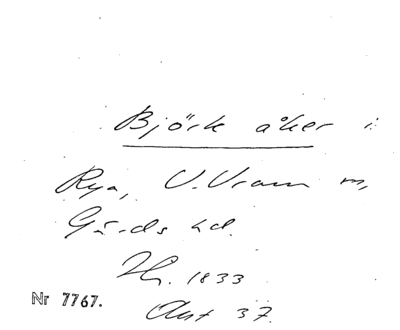 Björk åker i
Rya, V. Vram m,
Gärds hd.
1833
Nr 7767.
37.